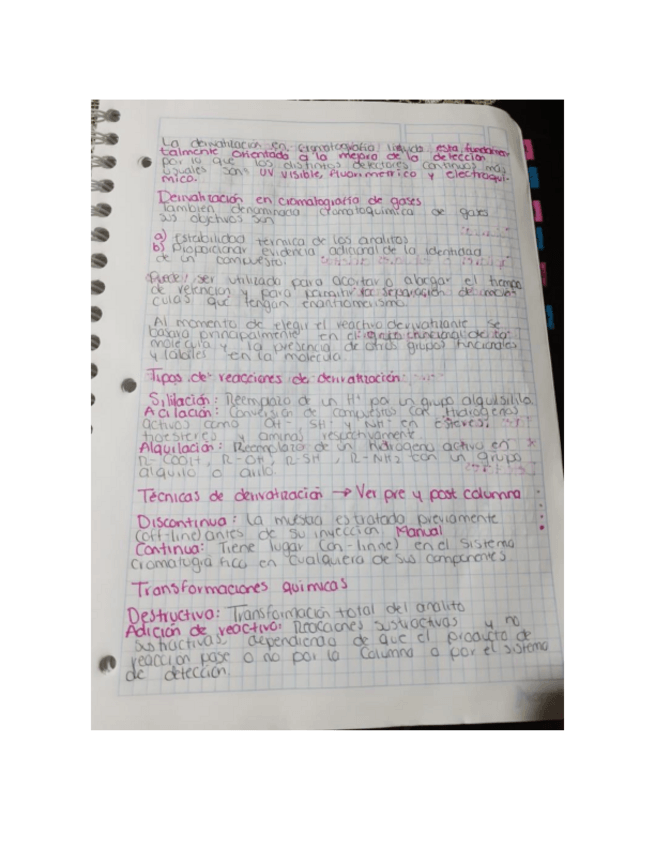 La derivatización en cromatografía líquida esta fundamen-
talmente orientada a la mejora de la detección
por lo que los distintos detectores continuos más
usuales son: UV visible, fluorimetrico y electroqui-
mico.
Derivatización en cromatografía de gases
También denominada cromatoquimica de gases
sus objetivos son
a) Estabilidad termica de los analitos
b) Proporcionar evidencia adicional de la identidad
de un compuesto.
Puede ser utilizado para acortar o alargar el tiempo
de retención y para permitir la separación de molé-
culas que tengan enantiomerismo.
Al momento de elegir el reactivo derivatizante se
basara principalmente en el grupo funcional de la
molecula y la presencia de otros grupos funcionales
y labiles en la molécula.
Tipos de reacciones de derivatización:
Sililación: Reemplazo de un H+ por un grupo alquilsilila
Acilación: Conversión de compuestos con Hidrogenos
activos como OH- SH- y NH- en esteres,
tioesteres y aminas respectivamente
Alquilación: Reemplazo de un hidrogeno activo en
R-COOH, R-OH, R-SH, R-NH2 con un grupo
alquilo o arilo.
Técnicas de derivatización → Ver pre y post columna
Discontinua: La muestra es tratada previamente
(off-line) antes de su inyección. Manual
Continua: Tiene lugar (on-linne) en el sistema
cromatográfico en cualquiera de sus componentes
Transformaciones químicas
Destructiva: Transformación total del analito
Adición de reactivo: Reacciones sustractivas y no
sustractivas dependiendo de que el producto de
reacción pase o no por la columna o por el sistema
de detección.